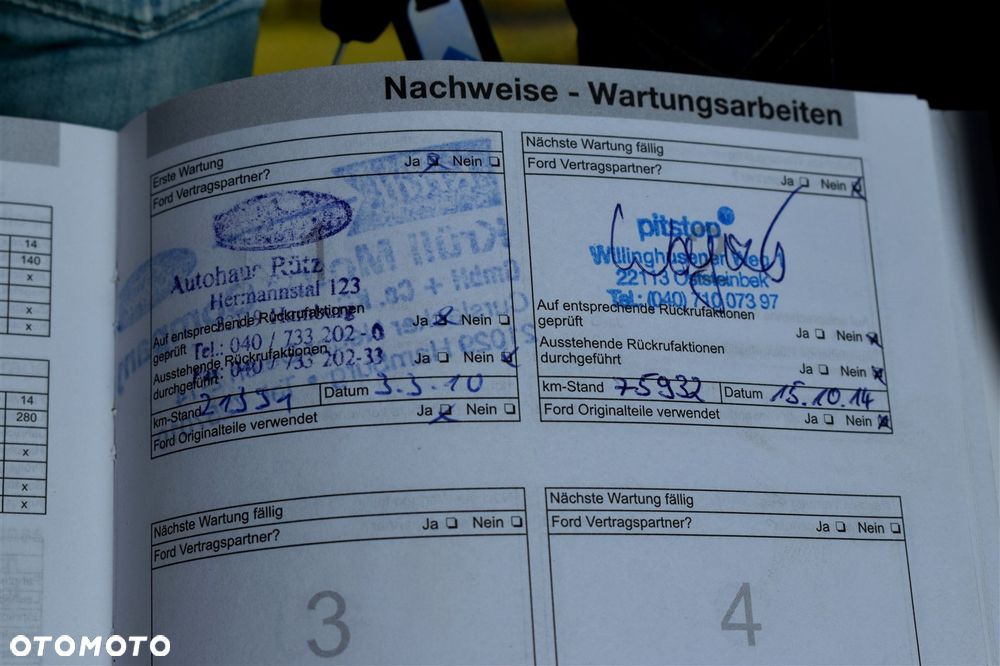 Nachweise - Wartungsarbeiten
Erste Wartung
Ja Nein
Ford Vertragspartner?
Autohaus Rütz
Hermannstal 123
Tel.: 040 / 733 202-0
040 / 733 202-33
Krüll
GmbH + Co. KG
Auf entsprechende Rückrufaktionen
geprüft
Ja Nein
Ausstehende Rückrufaktionen
durchgeführt
Ja Nein
km-Stand 21334 Datum 3.3.10
Ford Originalteile verwendet Ja Nein
Nächste Wartung fällig
Ford Vertragspartner?
Ja Nein
pitstop
Willinghusener Weg 1
22113 Oststeinbek
Tel.: (040) 710 073 97
Auf entsprechende Rückrufaktionen
geprüft
Ja Nein
Ausstehende Rückrufaktionen
durchgeführt
Ja Nein
km-Stand 75932 Datum 15.10.14
Ford Originalteile verwendet Ja Nein
Nächste Wartung fällig
Ford Vertragspartner?
Ja Nein
3
Nächste Wartung fällig
Ford Vertragspartner? Ja Nein
4
14
140
x
x
x
14
280
x
x
x
OTOMOTO